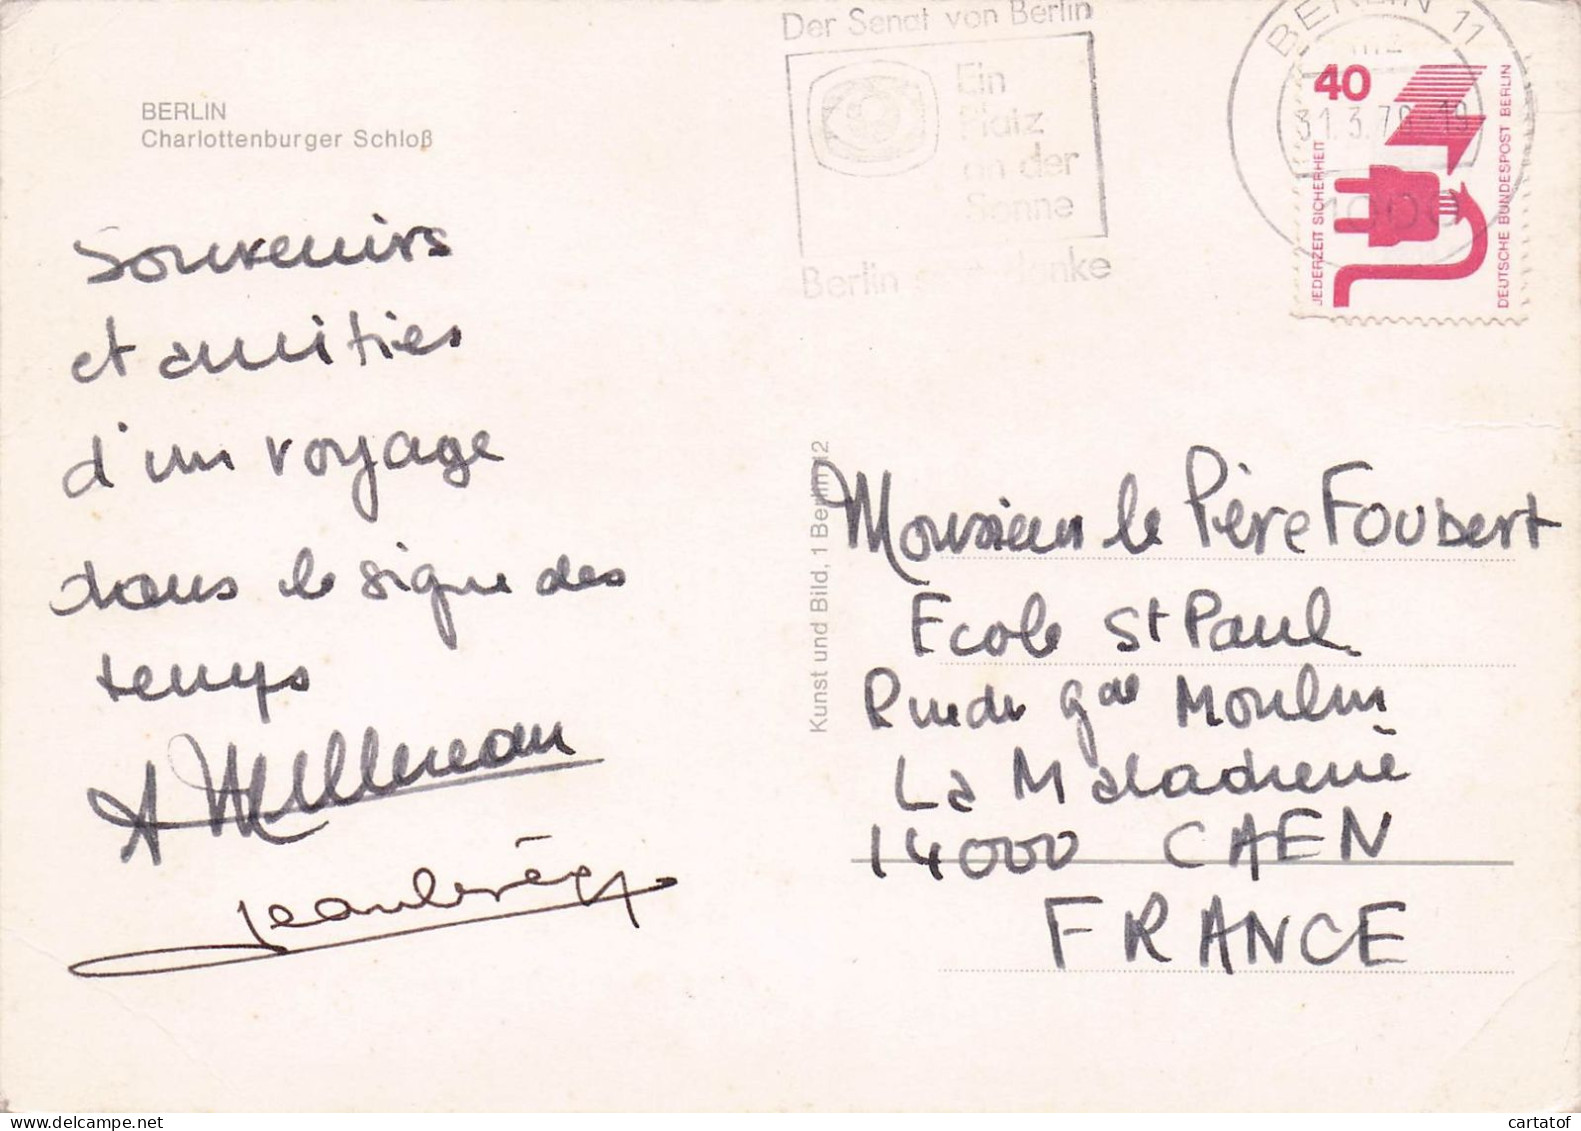 BERLIN
Charlottenburger Schloß
Souvenirs
et amitiés
d'un voyage
dans le signe des
temps
Der Senat von Berlin
Ein
Platz
an der
Sonne
Berlin
BERLIN 11
1000
40
JEDERZEIT SICHERHEIT
DEUTSCHE BUNDESPOST BERLIN
Kunst und Bild, 1 Berlin 12
Monsieur le Père Foubert
Ecole St Paul
Rue du Gal Moulin
La Maladrerie
14000 CAEN
FRANCE
cartatof